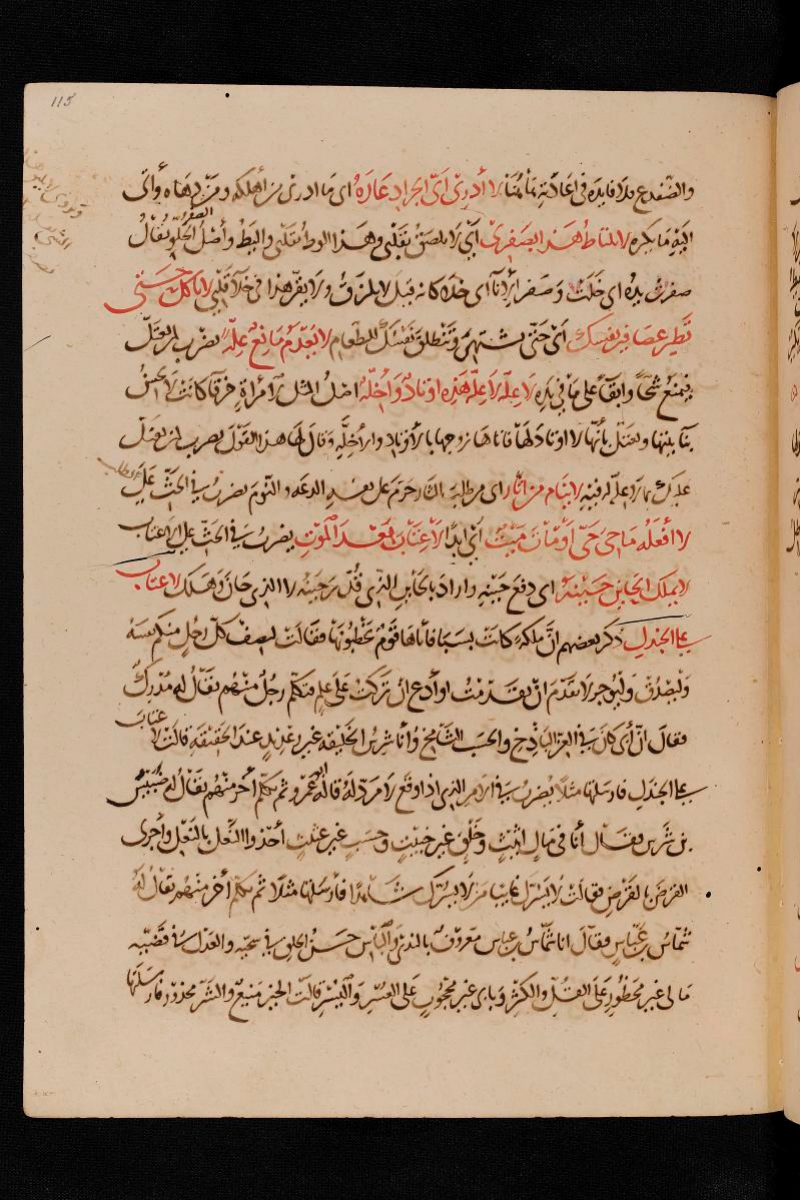 115
والضفدع فلا فايدة في اعادته هاهنا لا أدري أي الجراد عاره اى ما ادرى من أهلكه ومن دهاه وأتى
اليه ما يكره لا يلتاط هذا بصفري أي لا يلصق بقلبي وهذا الوطأ بقلبي واليط وأصل الصفر الخلو يقال
صفرت يده اى خلت وصفر إناؤنا اى خلا كانه قيل لا يلزق ولا يقر هذا فى خلاء قلبي لا آكل حتى
تطير عصافير نفسك أي حتى تشتهي وتنطلق نفسك للطعام لا يعدم مانع علة يضرب لمن يعتل
فيمنع شحا وابقاء على ما في يده لا علة لا علة هذه اوتاد وأخلة اصل المثل لامرأة خرقاء كانت لا تحسن
بناء بيتها وتعتل بأنها لا اوتاد لها فاتاها زوجها بالأوتاد والأخلة وقال لها هذا القول يضرب لمن يعتل
عليك بما لا علة له فيه لا ينام من أثار اى من طلب الثار حرم على نفسه الدعه والنوم يضرب في الحث على
لا أفعله ما حي حي أو مات ميت أي ابدا لا عتاب بعد الموت يضرب في الحث على الاعتاب
لا يملك الحاين حينه اى دفع حينه واراد بالحاين الذي قدر حينه لا الذى حان وهلك لا عتاب
على الجندل ذكر بعضهم ان ملكة كانت بسبا فأتاها قوم يخطبونها فقالت ليصف كل رجل منكم نفسه
وليصدق وليوجز لاتقدم ان تقدمت او أدع ان تركت على علم فتكلم رجل منهم يقال له مدرك
فقال ان أبي كان في العز الباذخ والحسب الشامخ وأنا شرس الخليقة غير رعديد عند الحقيقة قالت لا عتاب
على الجندل فارسلتها مثلا يضرب في الامر الذى اذا وقع لا مرد له قاله ابو عمرو ثم تكلم آخر منهم يقال له ضبيس
بن شرس فقال أنا فى مال أثيث وخلق غير خبيث وحسب غير عثيث أحذو النعل بالنعل وأجزى
القرض بالقرض فقالت لا يسرك غايبا من لا يسرك شاهدا فأرسلتها مثلا ثم تكلم آخر منهم يقال له
شماس بن عباس فقال انا شماس بن عباس معروف بالندى والباس حسن الخلق في سجيه والعدل في قضيه
مالى غير محظور على القل والكثر وبابى غير محجوب على العسر واليسر قالت الخير متبع والشر محذور فارسلتها